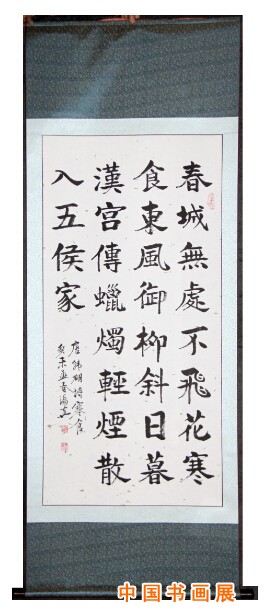 春城無處不飛花寒
食東風御柳斜日暮
漢宮傳蠟燭輕煙散
入五侯家
唐韩翃诗寒食
癸未
中国书画展